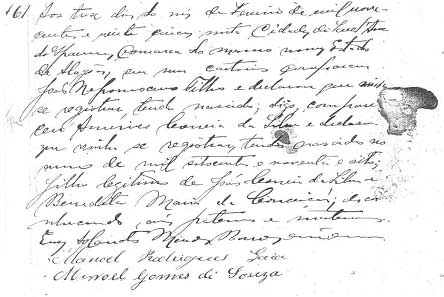 161 Aos tres dias do mez de Janeiro de mil nove
centos e vinte nesta Cidade de
do Ipanema, Comarca do mesmo nome Estado
de Alagôas, em meu cartorio compareceu
José Nepomuceno Filho e declarou que
se registrar tendo nascido; digo, compare
ceu Americo Correia da Silva e declarou
que vinha se registrar, tendo nascido no
anno de mil oitocentos e noventa e oito,
filho legitimo de José Correia da Silva e
Benedicta Maria da Conceição; des
conhecendo avós paternos e maternos.
Eu, Mendes escrivão
Manoel Rodrigues Gaia
Manoel Gomes di Souza